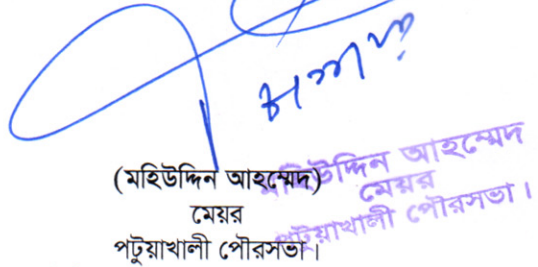 (মহিউদ্দিন আহম্মেদ)
মেয়র
পটুয়াখালী পৌরসভা।
মহিউদ্দিন আহম্মেদ
মেয়র
পটুয়াখালী পৌরসভা।